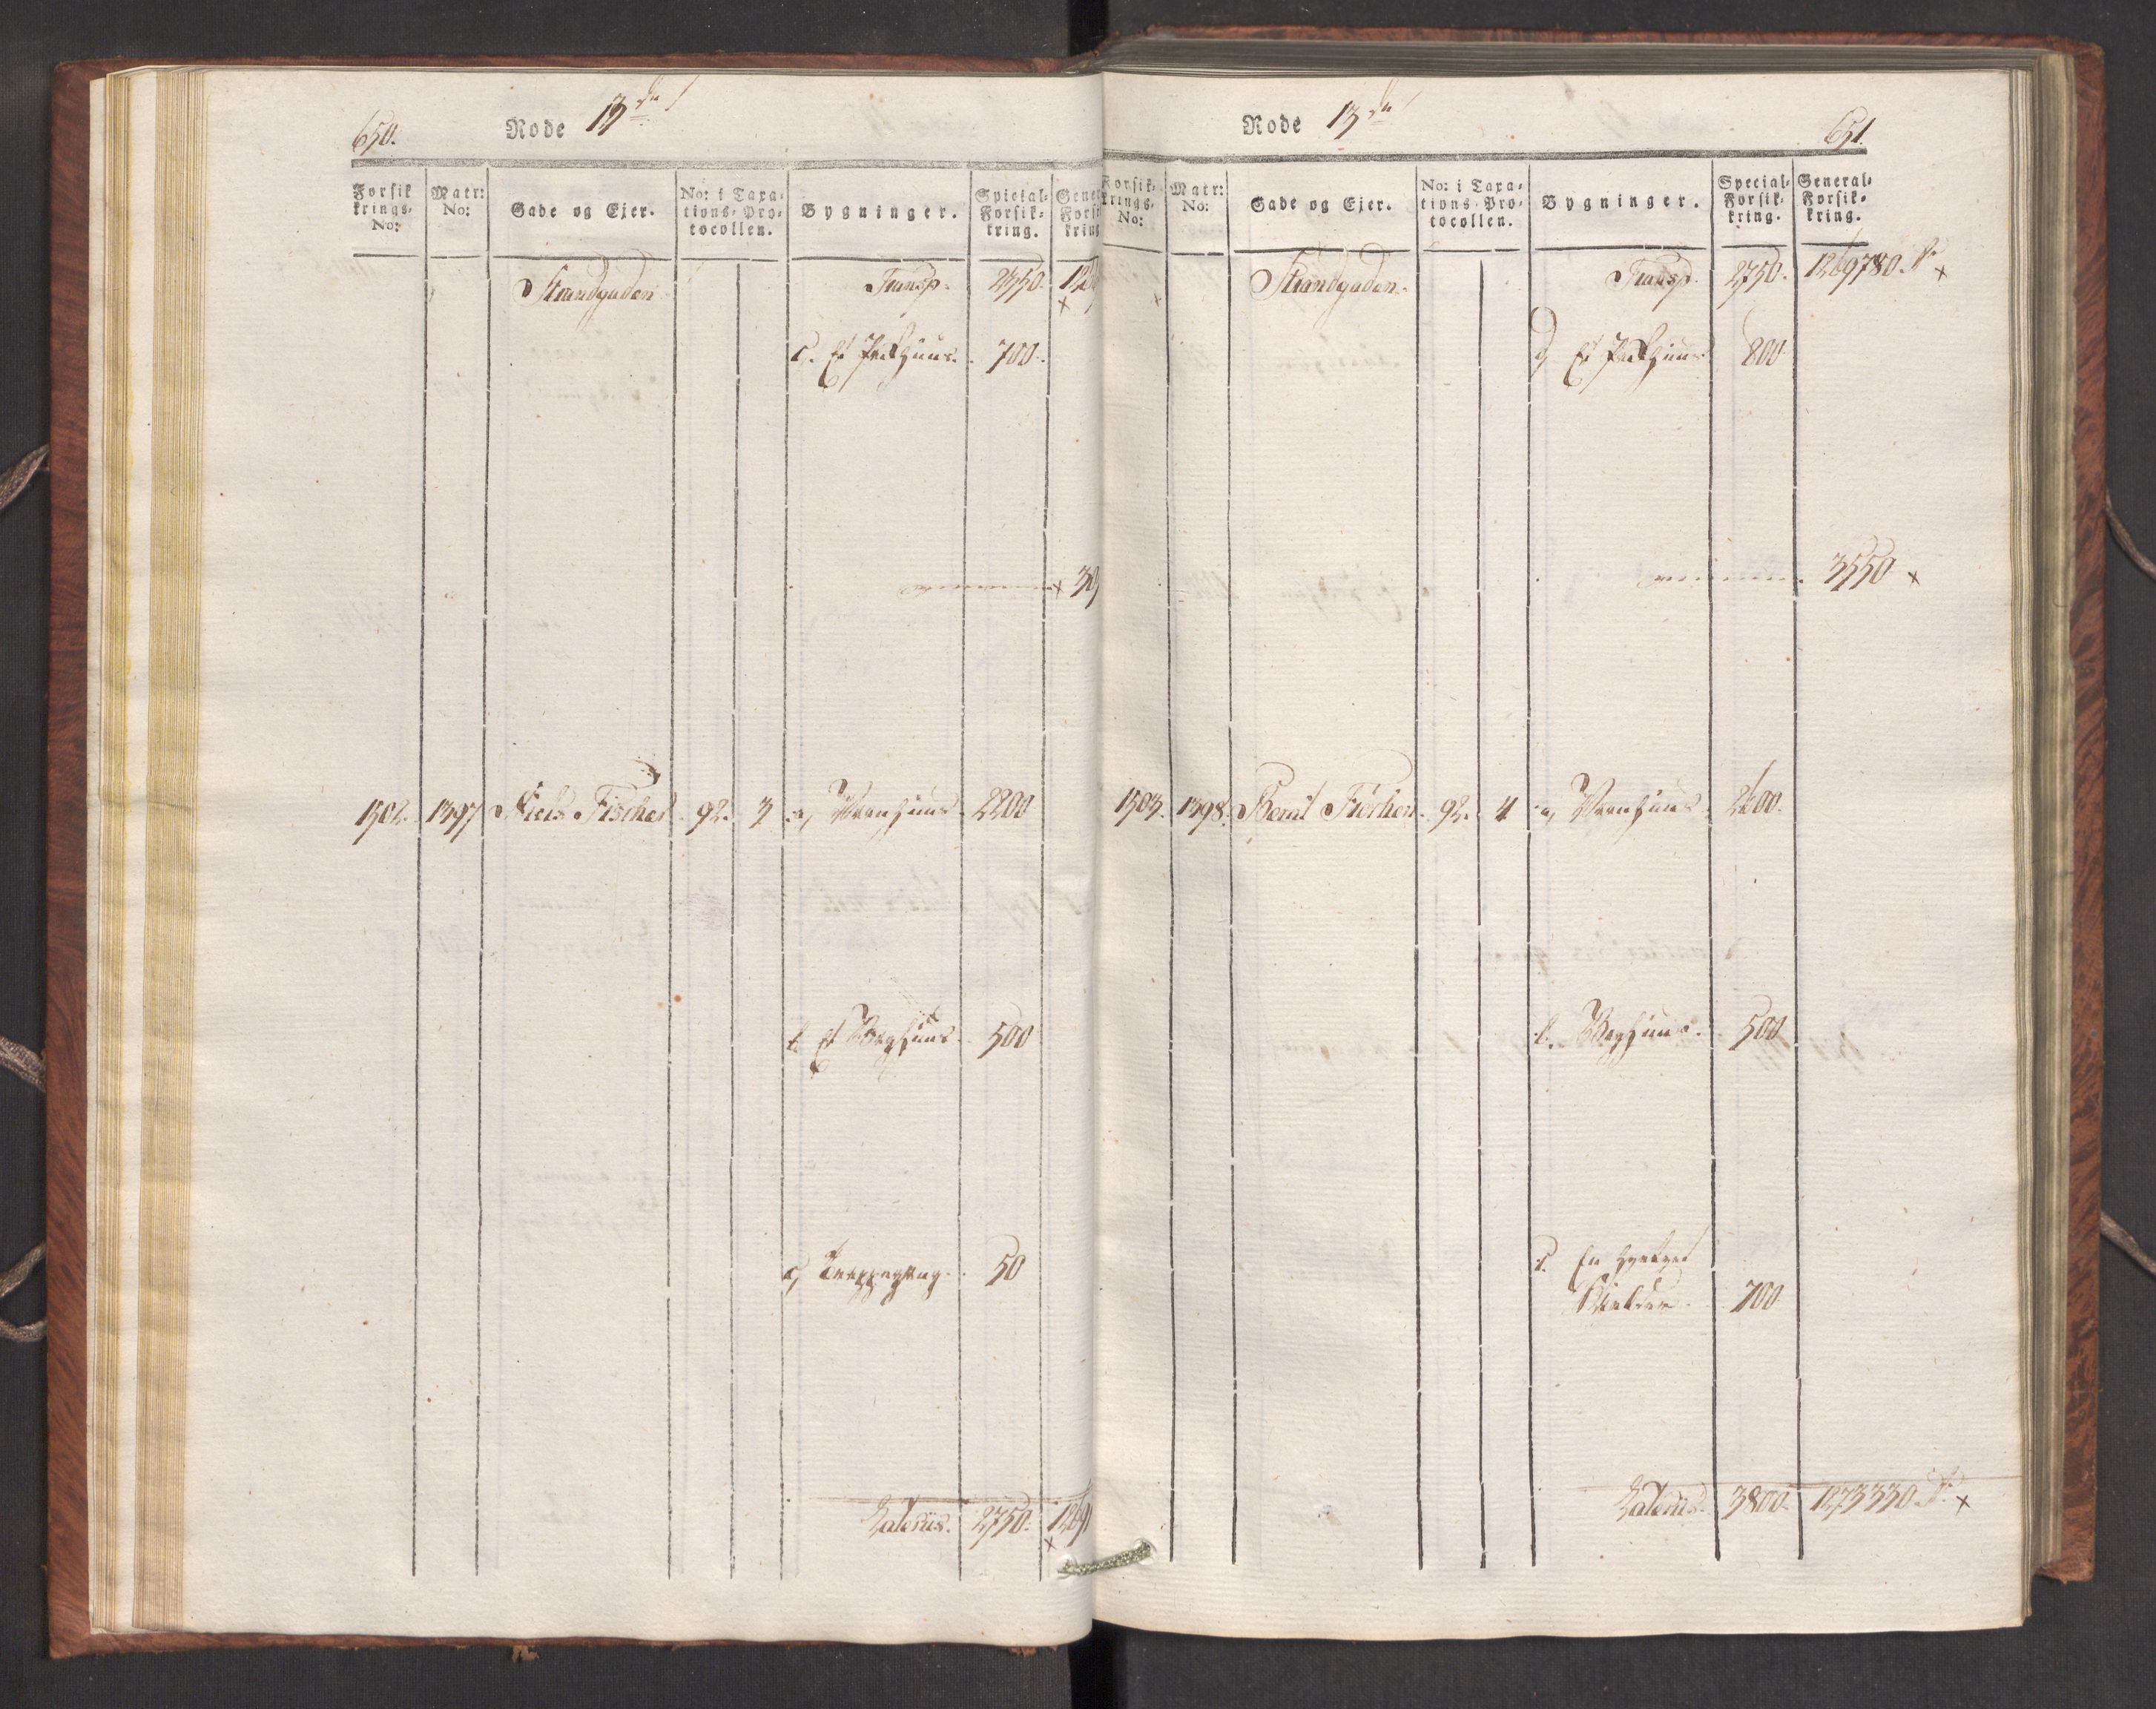 650.
Rode 13de
Forsik
krings-
No:
Matr:
No:
Gade og Ejer.
No: i Taxa-
tions-Pro-
tocollen.
Bygninger.
Spicial-
Forsik-
kring.
Strandgaden
Transp. 2350.
c, Et Pakhuus. 700.
1502. 1397 Niels Fischer 92. 3 a, Vaanhuus 2200
b. Et Baghuus. 500
c, 50
Lateris. 2750.
Rode 13de
651.
Forsik-
krings-
No:
Matr:
No:
Gade og Ejer.
No: i Taxa-
tions-Pro-
tocollen.
Bygninger.
Special-
Forsik-
kring.
General-
Forsik-
kring.
Strandgaden.
Transp. 2750. 1269780. x
d, Et Pakhuus 800
3550 x
1503. 1398. Bernt 92. 4 a, Vaanhuus
b. Baghuus. 500
c. En
Kielder 700
Lateris. 3800. 1273330. x